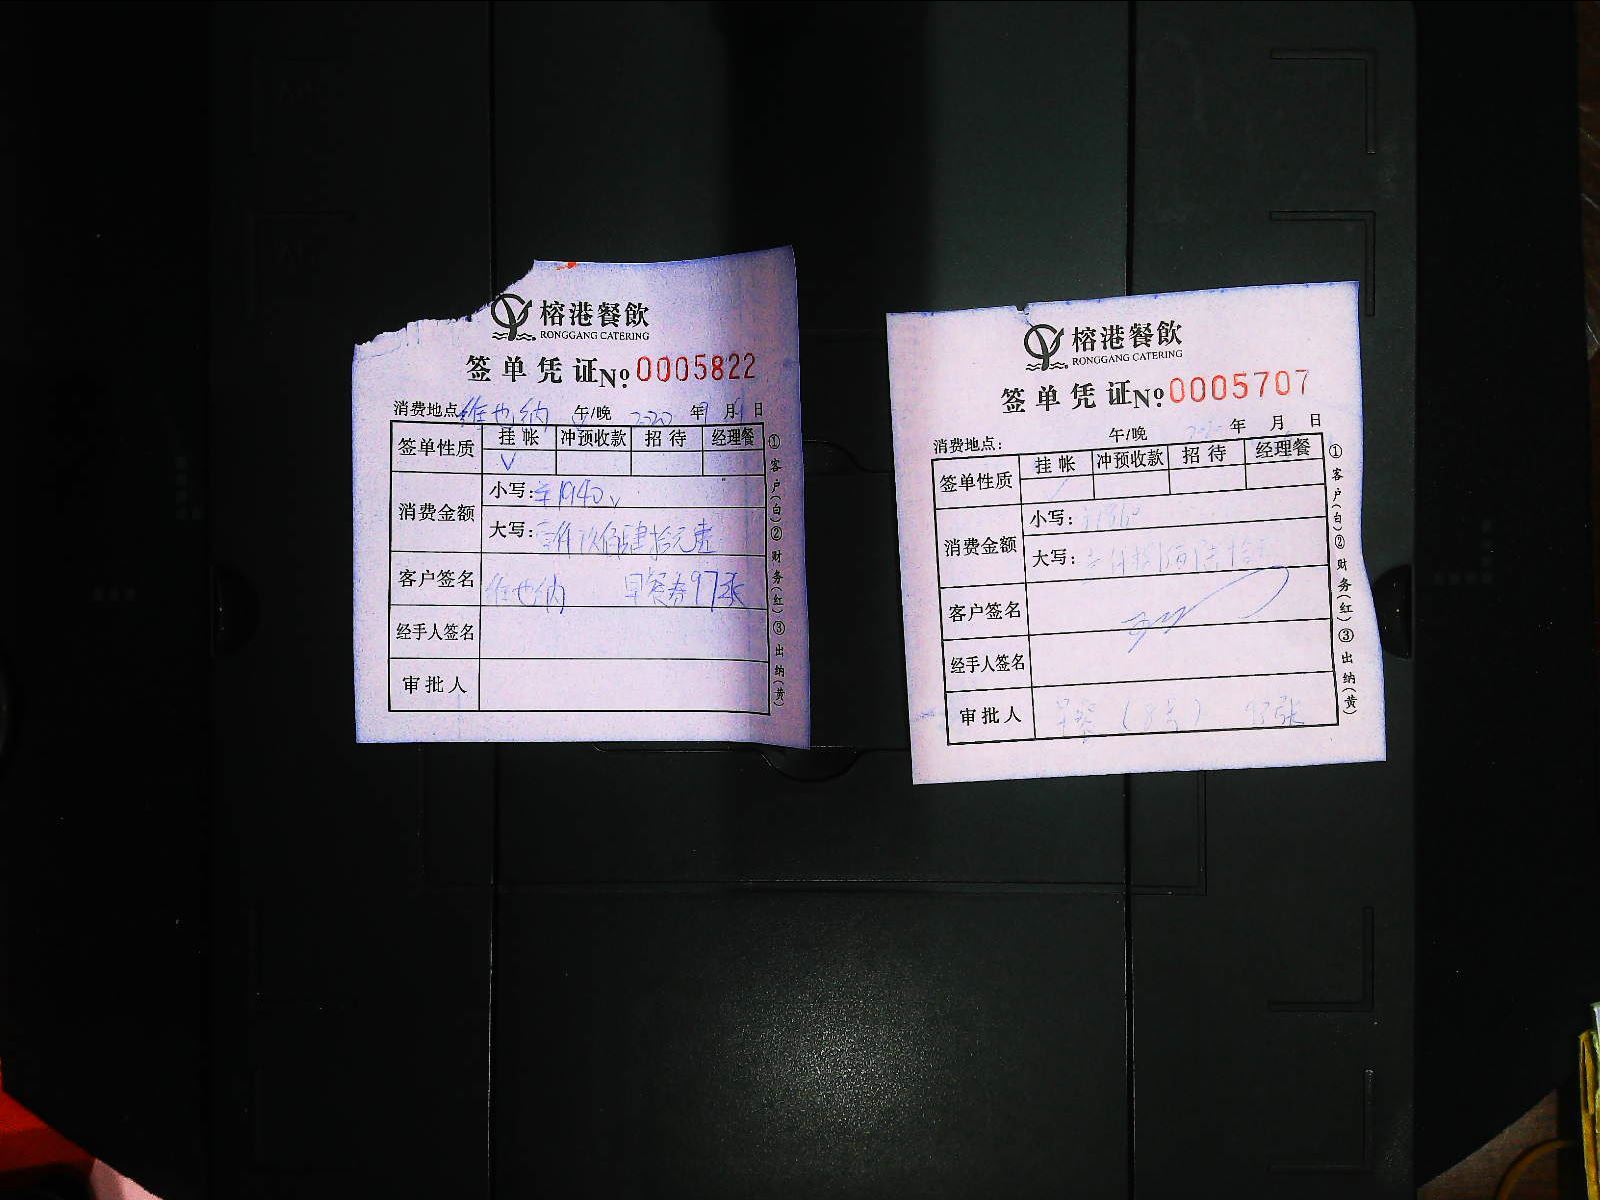 榕港餐飲
RONGGANG CATERING
签单凭证 No. 0005822
消费地点 维也纳 午/晚 2020 年 月 日
签单性质 挂帐 冲预收款 招待 经理餐
√
消费金额 小写: ¥1940
大写: 壹仟玖佰肆拾元
客户签名 维也纳 早餐券97张
经手人签名
审批人
①客户(白)②财务(红)③出纳(黄)
榕港餐飲
RONGGANG CATERING
签单凭证 No. 0005707
消费地点: 午/晚 年 月 日
签单性质 挂帐 冲预收款 招待 经理餐
消费金额 小写:
大写:
客户签名
经手人签名
审批人 93张
①客户(白)②财务(红)③出纳(黄)